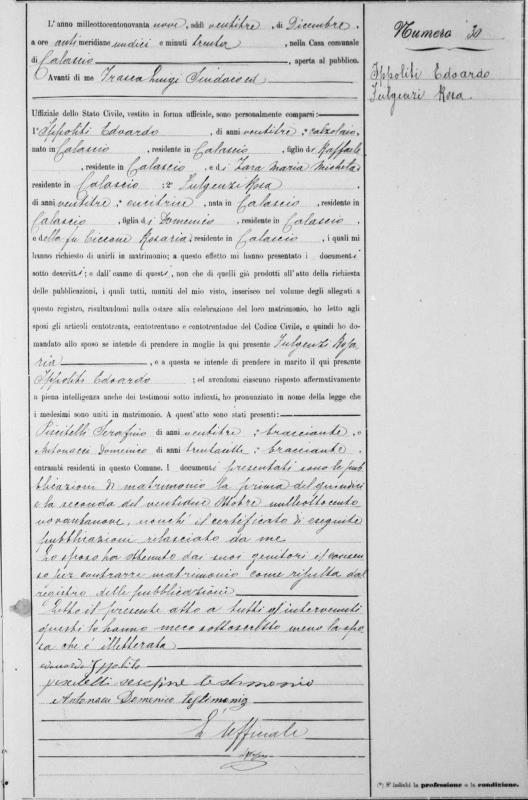 L'anno millottocentonovanta nove, addì ventitre, di Dicembre,
a ore antimeridiane undici e minuti trenta, nella Casa comunale
di Calascio, aperta al pubblico.
Avanti di me Frasca Luigi Sindaco ed
Uffiziale dello Stato Civile, vestito in forma ufficiale, sono personalmente comparsi:
1° Ippoliti Edoardo, di anni ventitre : calzolaio,
nato in Calascio, residente in Calascio, figlio di Raffaele
, residente in Calascio, e di Zara Maria Michela
residente in Calascio : 2° Fulgenzi Rosa
di anni ventitre : cucitrice, nata in Calascio, residente in
Calascio, figlia di Domenico, residente in Calascio
e della fu Ciccone Rosaria, residente in Calascio, i quali mi
hanno richiesto di unirli in matrimonio; a questo effetto mi hanno presentato i documenti
sotto descritti; e dall'esame di questi, non che di quelli già prodotti all'atto della richiesta
delle pubblicazioni, i quali tutti, muniti del mio visto, inserisco nel volume degli allegati a
questo registro, risultandomi nulla ostare alla celebrazione del loro matrimonio, ho letto agli
sposi gli articoli centotrenta, centotrentuno e centotrentadue del Codice Civile, e quindi ho do-
mandato allo sposo se intende di prendere in moglie la qui presente Fulgenzi Rosa
ria, e a questa se intende di prendere in marito il qui presente
Ippoliti Edoardo ; ed avendomi ciascuno risposto affermativamente
a piena intelligenza anche dei testimoni sotto indicati, ho pronunziato in nome della legge che
i medesimi sono uniti in matrimonio. A quest'atto sono stati presenti:
Piscitelli Serafino di anni ventitre : bracciante, e
Antonacci Domenico di anni trentasette : bracciante,
entrambi residenti in questo Comune. I documenti presentati sono le pub
blicazioni di matrimonio la prima del quindici
e la seconda del ventidue Ottobre milleottocento
novantanove, nonchè il certificato di eseguite
pubblicazioni rilasciato da me
Lo sposo ha ottenuto dai suoi genitori il consen
so per contrarre matrimonio come risulta dal
registro delle pubblicazioni
Letto il presente atto a tutti gl'intervenuti
questi lo hanno meco sottoscritto meno la spo
sa che è illetterata
edoardo Ippolito
piscitelli testimonio
Antonacci Domenico testimonio
L'Uffiziale
Numero 30
Ippoliti Edoardo
Fulgenzi Rosa.
(*) S'indichi la professione o la condizione.